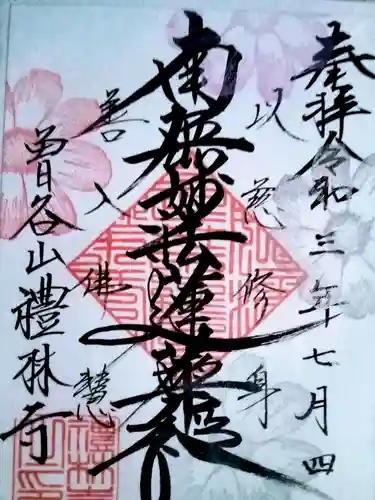 奉拝 令和三年十七月四
以慈修身
南無妙法蓮華経
善入佛慧
曽谷山禮林寺